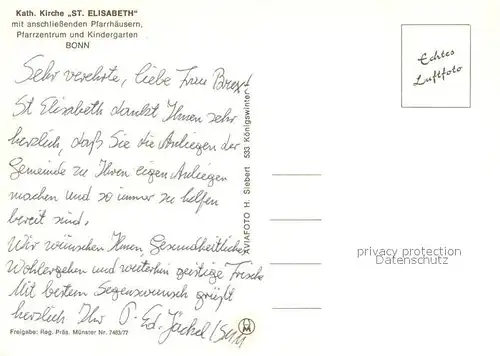 Kath. Kirche „ST. ELISABETH"
mit anschließenden Pfarrhäusern,
Pfarrzentrum und Kindergarten
BONN
Sehr verehrte, liebe Frau
St Elisabeth dankt Ihnen sehr
herzlich, daß Sie die Anliegen der
Gemeinde zu Ihren eigen Anliegen
machen und so immer zu helfen
bereit sind.
Wir wünschen Ihnen Gesundheitliches
Wohlergehen und weiterhin geistige Frische
Mit bestem Segenswunsch grüßt
herzlich Ihr P. Ed. Jäckel
Freigabe: Reg. Präs. Münster Nr. 7463/77
AVIAFOTO H. Siebert 533 Königswinter
Echtes
Luftfoto
privacy protection
Datenschutz